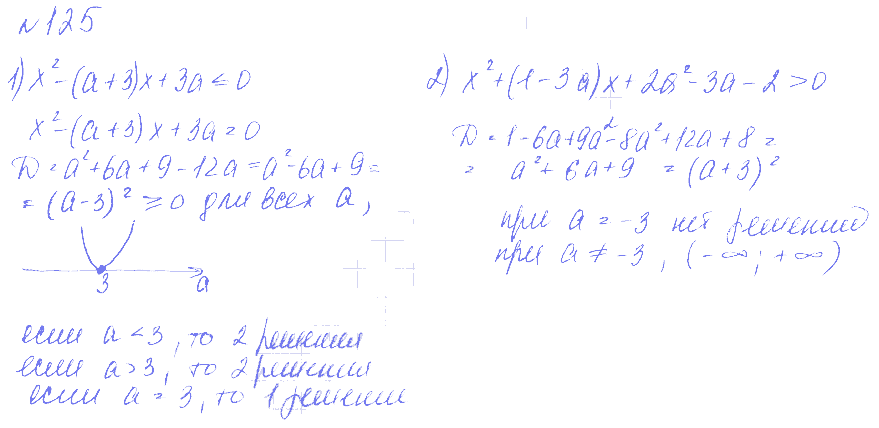 №125
1) x² - (a+3)x + 3a ≤ 0
x² - (a+3)x + 3a = 0
D = a² + 6a + 9 - 12a = a² - 6a + 9 =
= (a-3)² ≥ 0 для всех a,
3
a
если a < 3, то 2 решения
если a > 3, то 2 решения
если a = 3, то 1 решение
2) x² + (1-3a)x + 2a² - 3a - 2 > 0
D = 1 - 6a + 9a² - 8a² + 12a + 8 =
= a² + 6a + 9 = (a+3)²
при a = -3 нет решений
при a ≠ -3, (-∞; +∞)